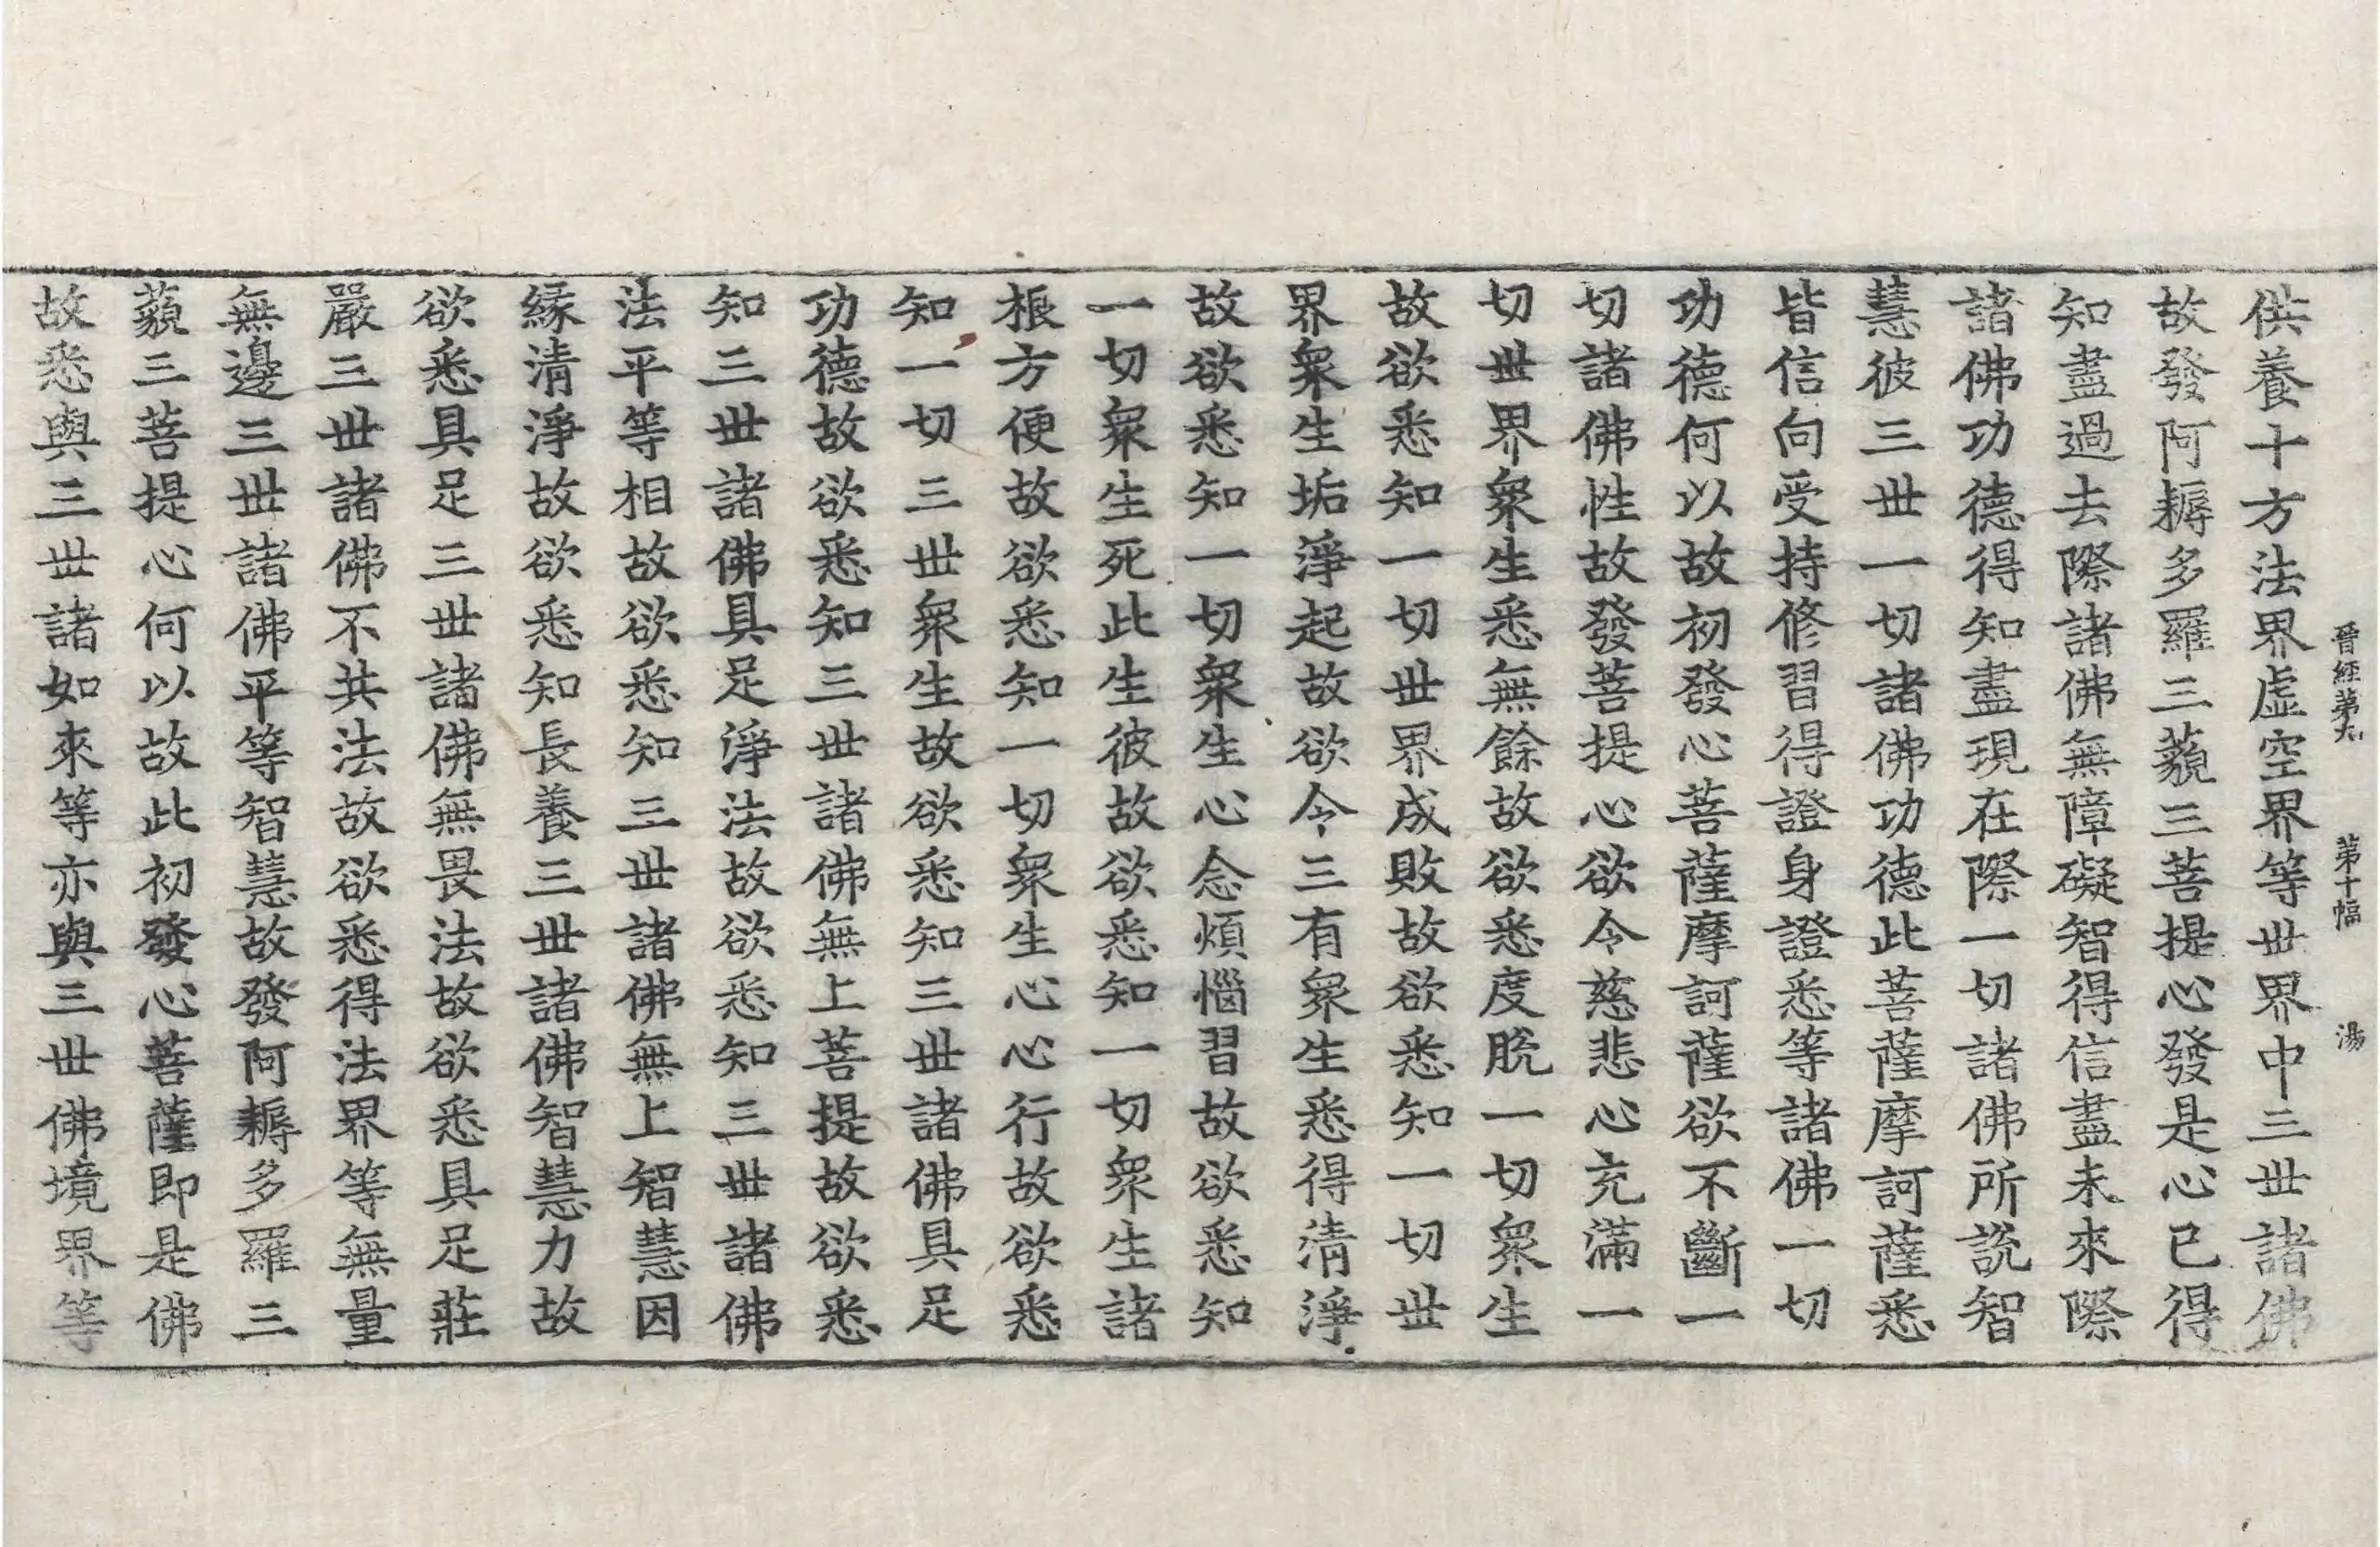 晉經第九 第十幅 湯
供養十方法界虛空界等世界中三世諸佛
故發阿耨多羅三藐三菩提心發是心已得
知盡過去際諸佛無障礙智得信盡未來際
諸佛功德得知盡現在際一切諸佛所說智
慧彼三世一切諸佛功德此菩薩摩訶薩悉
皆信向受持修習得證身證悉等諸佛一切
功德何以故初發心菩薩摩訶薩欲不斷一
切諸佛性故發菩提心欲令慈悲心充滿一
切世界衆生悉無餘故欲悉度脫一切衆生
故欲悉知一切世界成敗故欲悉知一切世
界衆生垢淨起故欲令三有衆生悉得清淨
故欲悉知一切衆生心念煩惱習故欲悉知
一切衆生死此生彼故欲悉知一切衆生諸
根方便故欲悉知一切衆生心心行故欲悉
知一切三世衆生故欲悉知三世諸佛具足
功德故欲悉知三世諸佛無上菩提故欲悉
知三世諸佛具足淨法故欲悉知三世諸佛
法平等相故欲悉知三世諸佛無上智慧因
緣清淨故欲悉知長養三世諸佛智慧力故
欲悉具足三世諸佛無畏法故欲悉具足莊
嚴三世諸佛不共法故欲悉得法界等無量
無邊三世諸佛平等智慧故發阿耨多羅三
藐三菩提心何以故此初發心菩薩即是佛
故悉與三世諸如來等亦與三世佛境界等